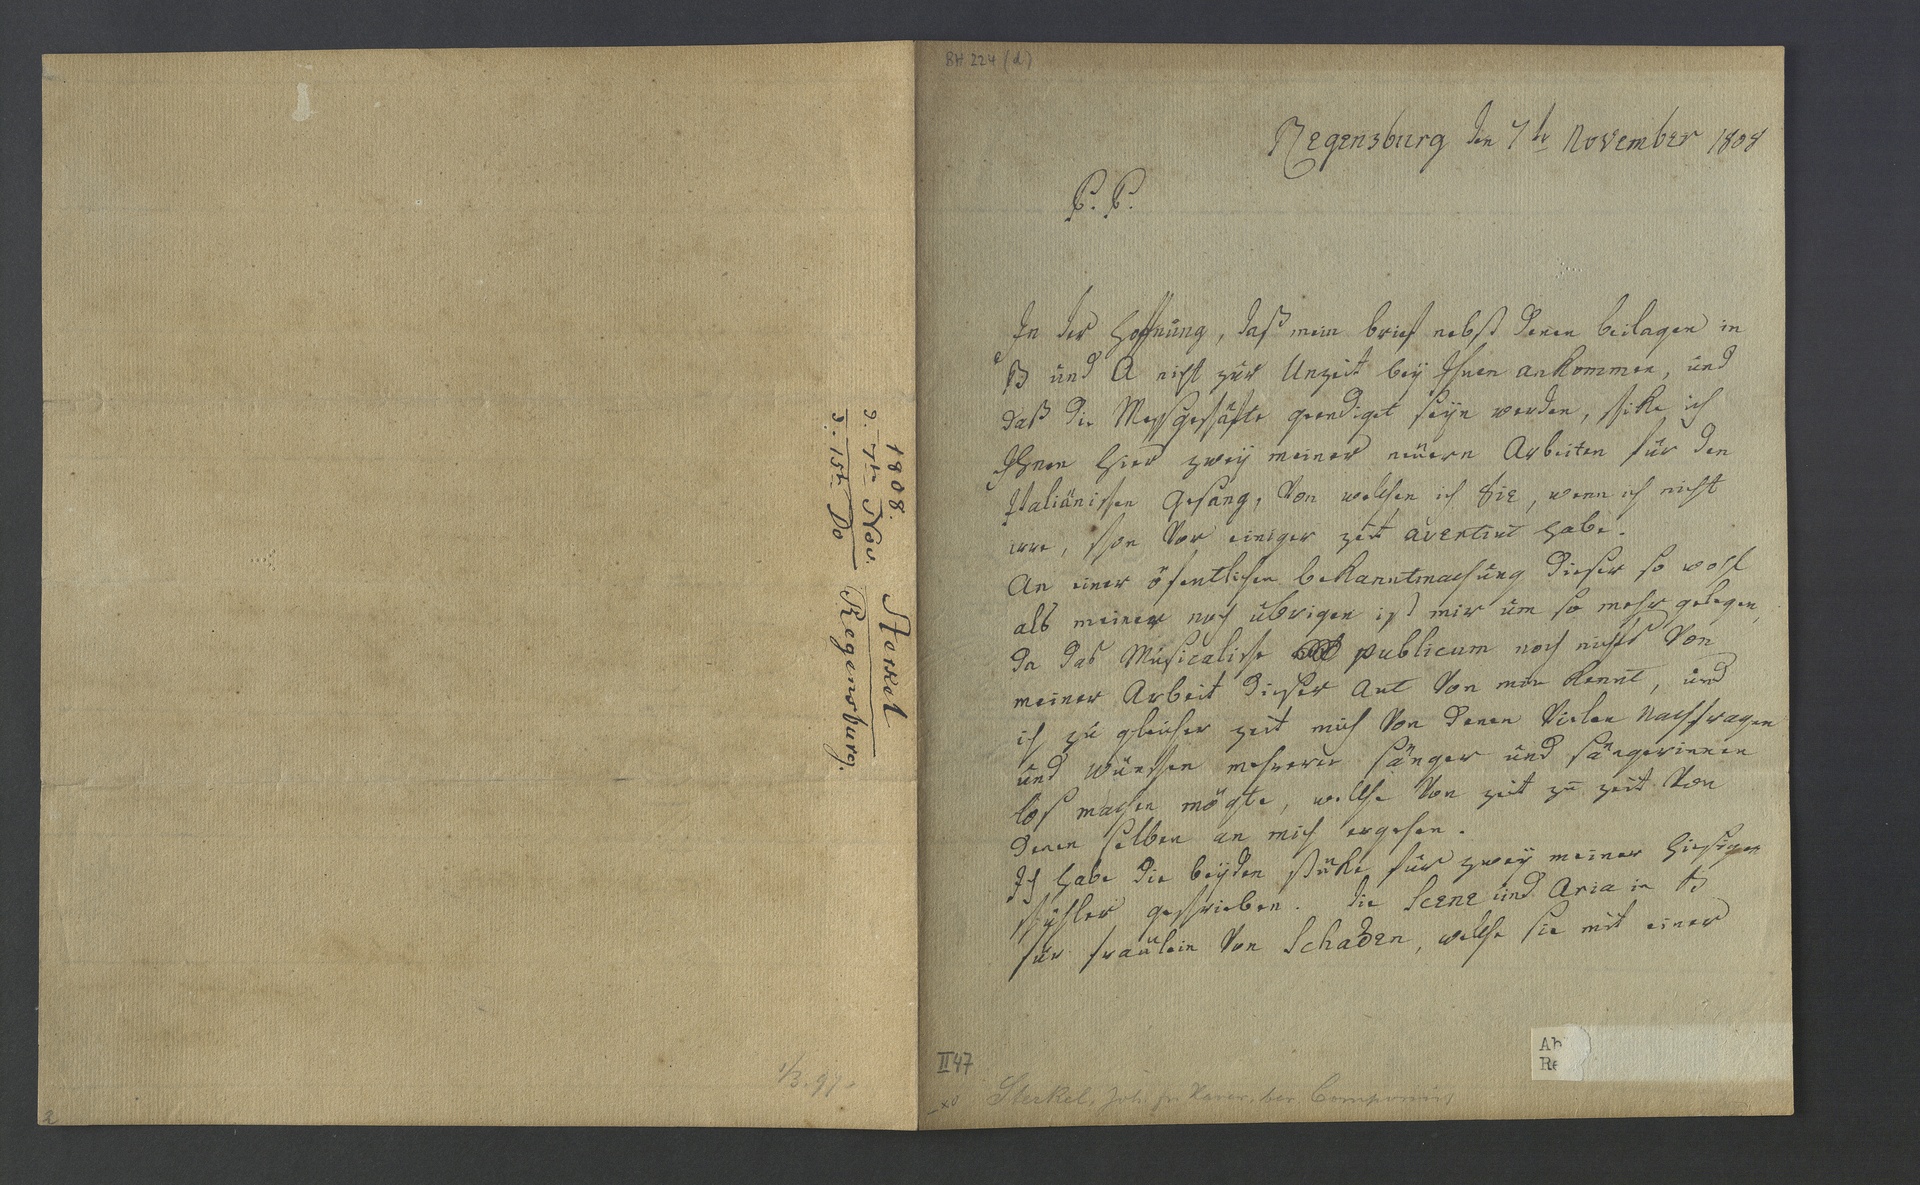 1808. Sterkel
d. 7tn Nov.
d. 15tn Do Regensburg.
1/3. 97.
2
BH 224 (d)
Regensburg den 7tn November 1808
P. P.
In der Hoffnung, daß mein brief nebst denen beilagen in
B und A nicht zur Unzeit beÿ Ihnen ankommen, und
daß die Messgeschäfte geendiget seÿn werden, schike ich
Ihnen hier zweÿ meiner neüern Arbeiten für den
Italiänischen gesang, von welchen ich Sie, wenn ich nicht
irre, schon vor einiger zeit avertirt habe.
An einer öfentlichen bekanntmachung dieser so wohl
als meiner noch übrigen ist mir um so mehr gelegen,
da das Musicalische publicum noch nichts von
meiner Arbeit dieser Art von mir kennt, und
ich zu gleicher zeit mich von denen vielen Nachfragen
und wünschen mehrerer sänger und sängerinnen
los machen mögte, welche von zeit zu zeit von
denen selben an mich ergehen.
Ich habe die beÿden stüke für zweÿ meiner hiesigen
schühler geschrieben. die Scene und Aria in B
für fraülein von Schaden, welche sie mit einer
Ab
Re
II 47
Sterkel, Joh. Fr. Xaver, der Componist